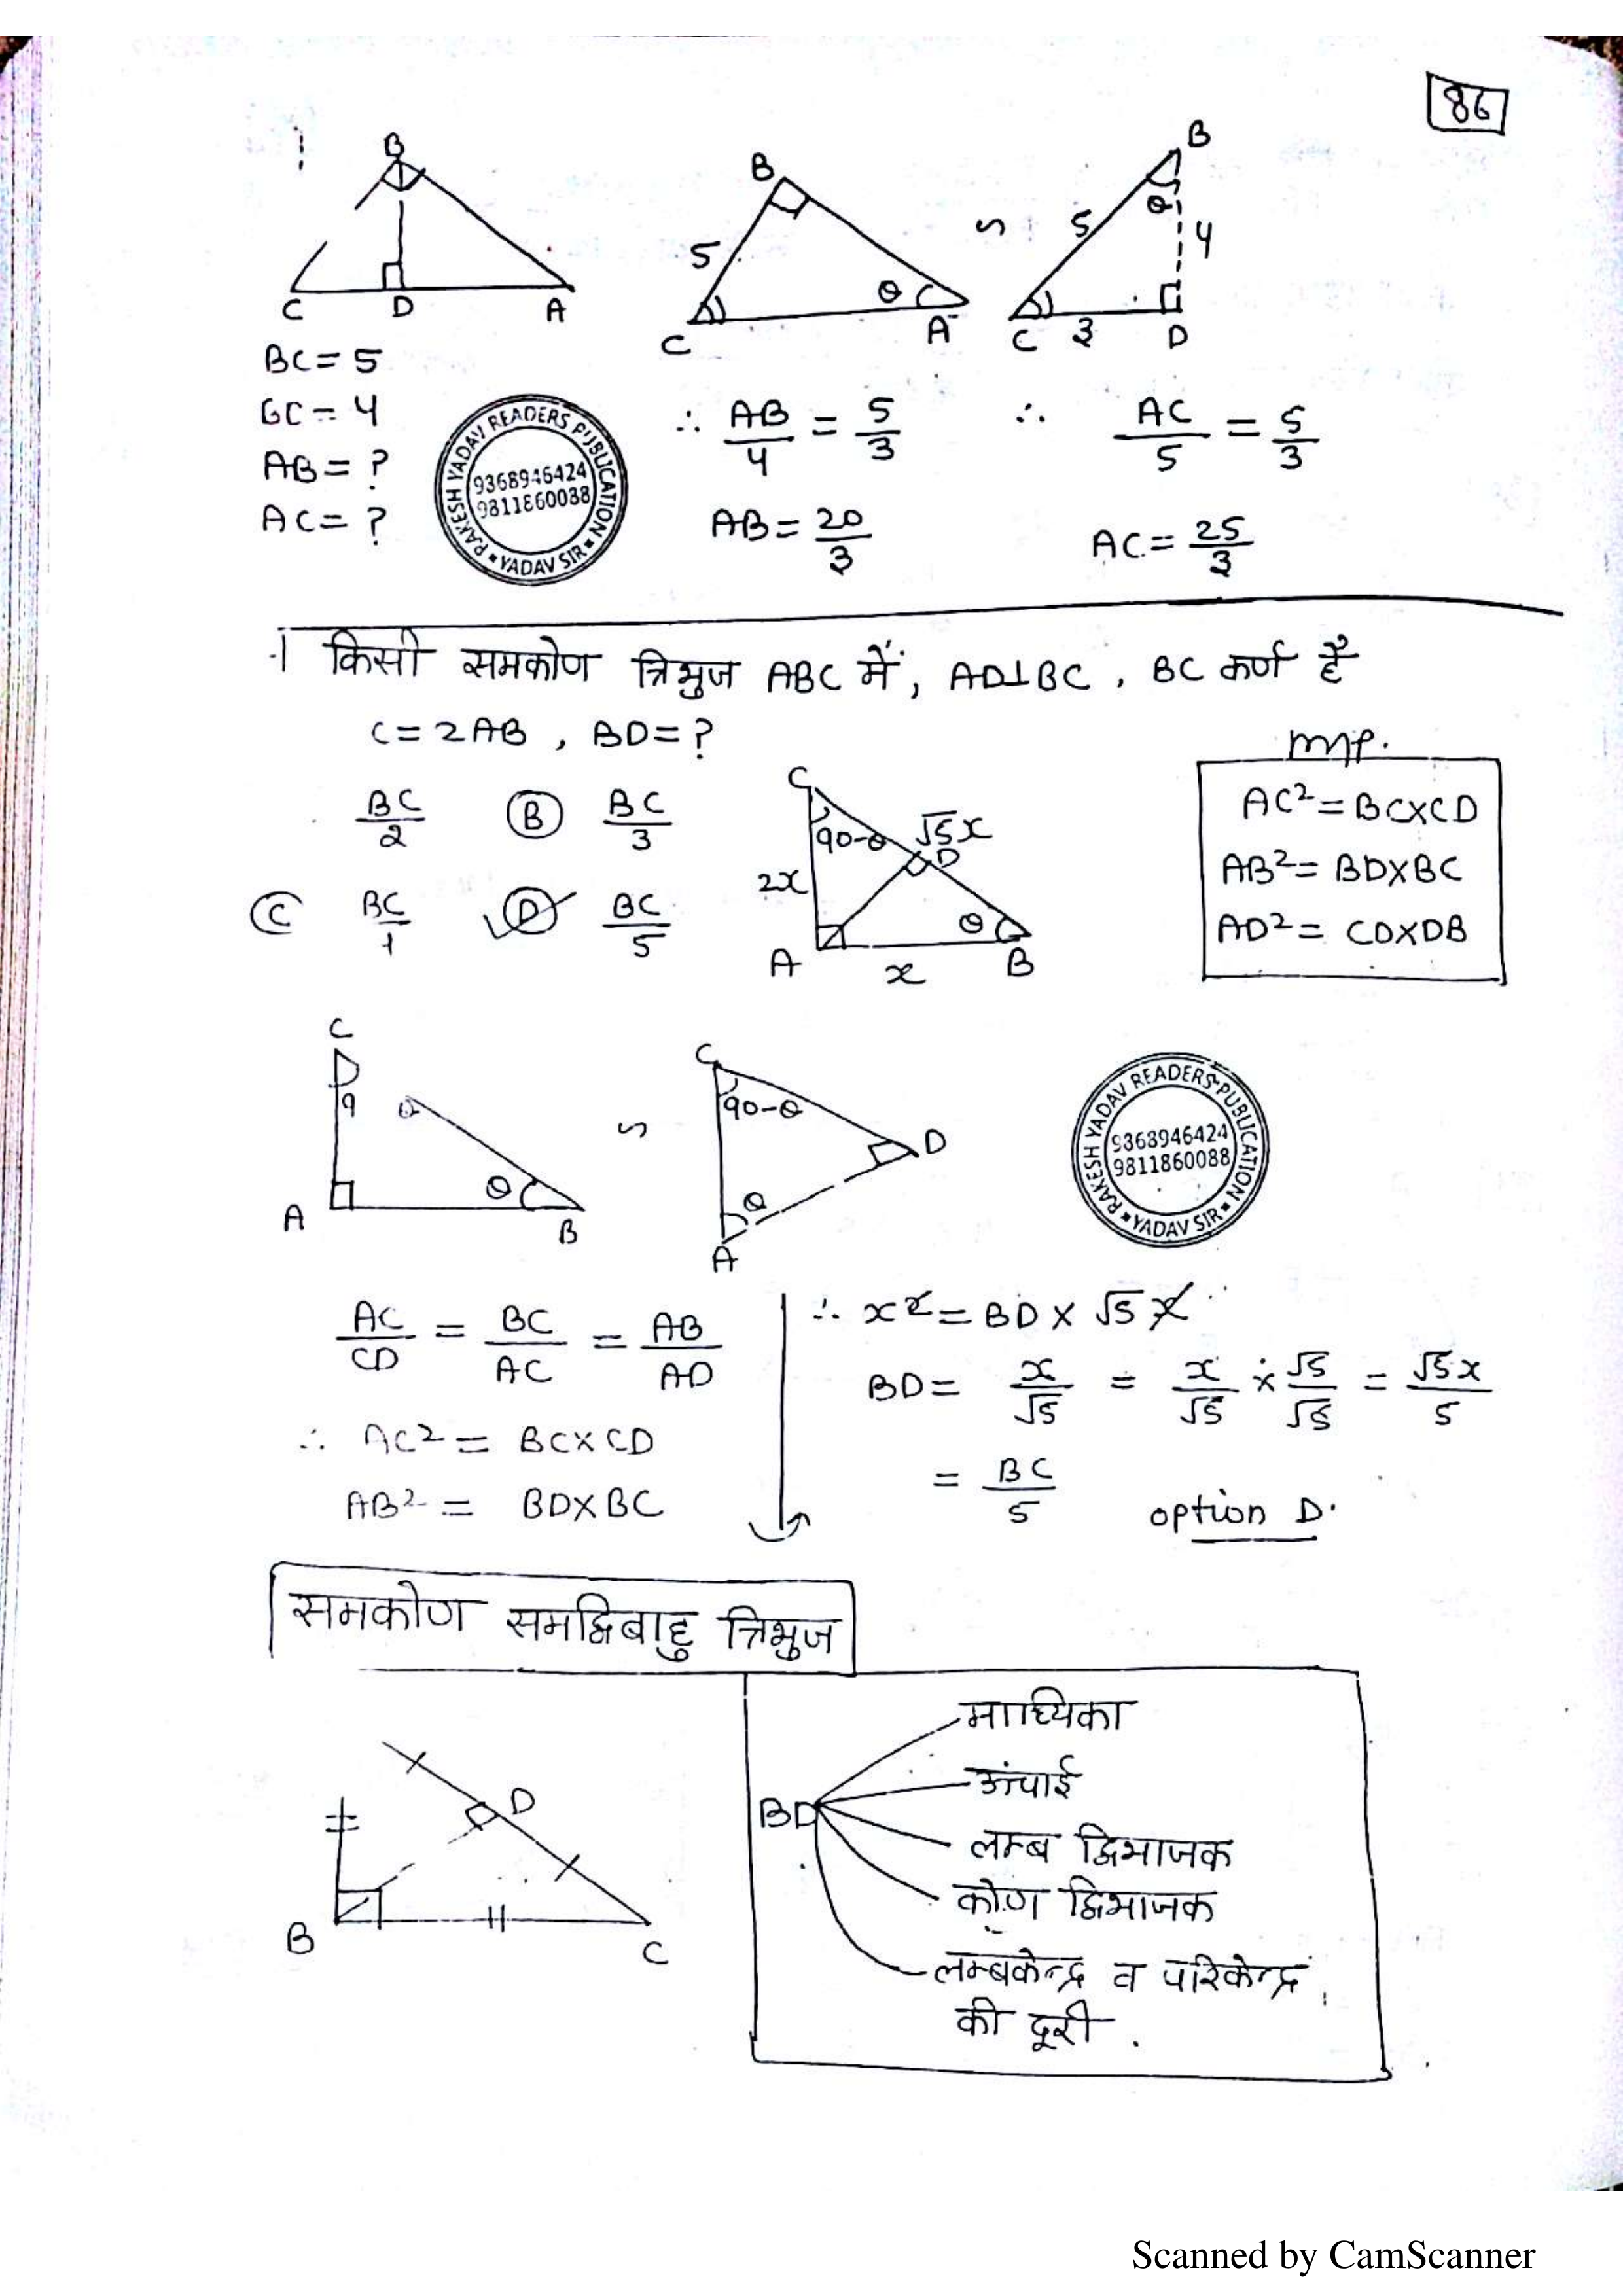 86
B
C D A
BC = 5
GC = 4
AB = ?
AC = ?
B
5
θ
C A
∽
B
θ
5 4
C 3 D
∴ AB/4 = 5/3
AB = 20/3
∴ AC/5 = 5/3
AC = 25/3
RAKESH YADAV READERS PUBLICATION
9368946424
9811860088
YADAV SIR
किसी समकोण त्रिभुज ABC में, AD⊥BC, BC कर्ण है
C = 2AB, BD = ?
BC/2 (B) BC/3
(C) BC/1 (D) BC/5
C
90-θ √5x
D
2x
θ
A x B
Imp.
AC² = BC×CD
AB² = BD×BC
AD² = CD×DB
C
9 θ
θ
A B
∽
C
90-θ
D
θ
A
RAKESH YADAV READERS PUBLICATION
9368946424
9811860088
YADAV SIR
AC/CD = BC/AC = AB/AD
∴ AC² = BC×CD
AB² = BD×BC
∴ x² = BD × √5 x
BD = x/√5 = x/√5 × √5/√5 = √5x/5
= BC/5 option D.
समकोण समद्विबाहु त्रिभुज
D
B C
BD
माध्यिका
ऊंचाई
लम्ब द्विभाजक
कोण द्विभाजक
लम्बकेन्द्र व परिकेन्द्र
की दूरी .
Scanned by CamScanner